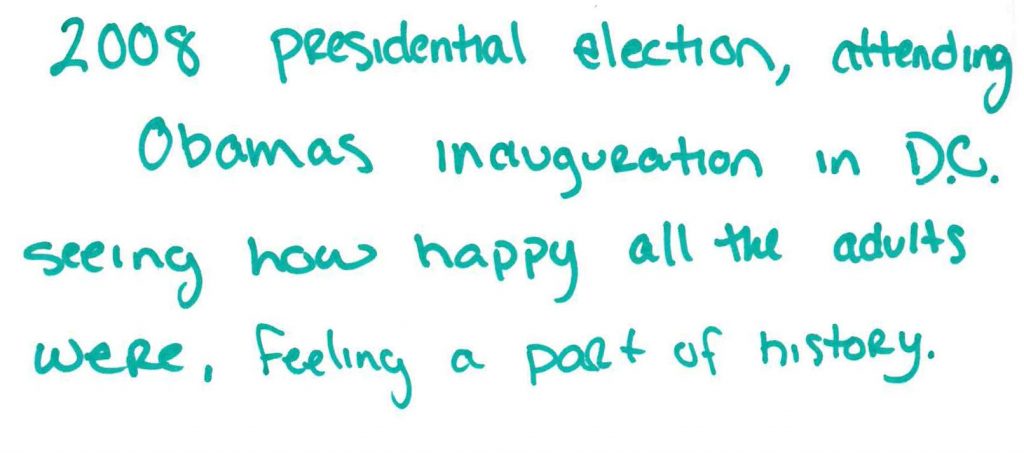 2008 presidential election, attending
Obamas inauguration in D.C.
seeing how happy all the adults
were, feeling a part of history.